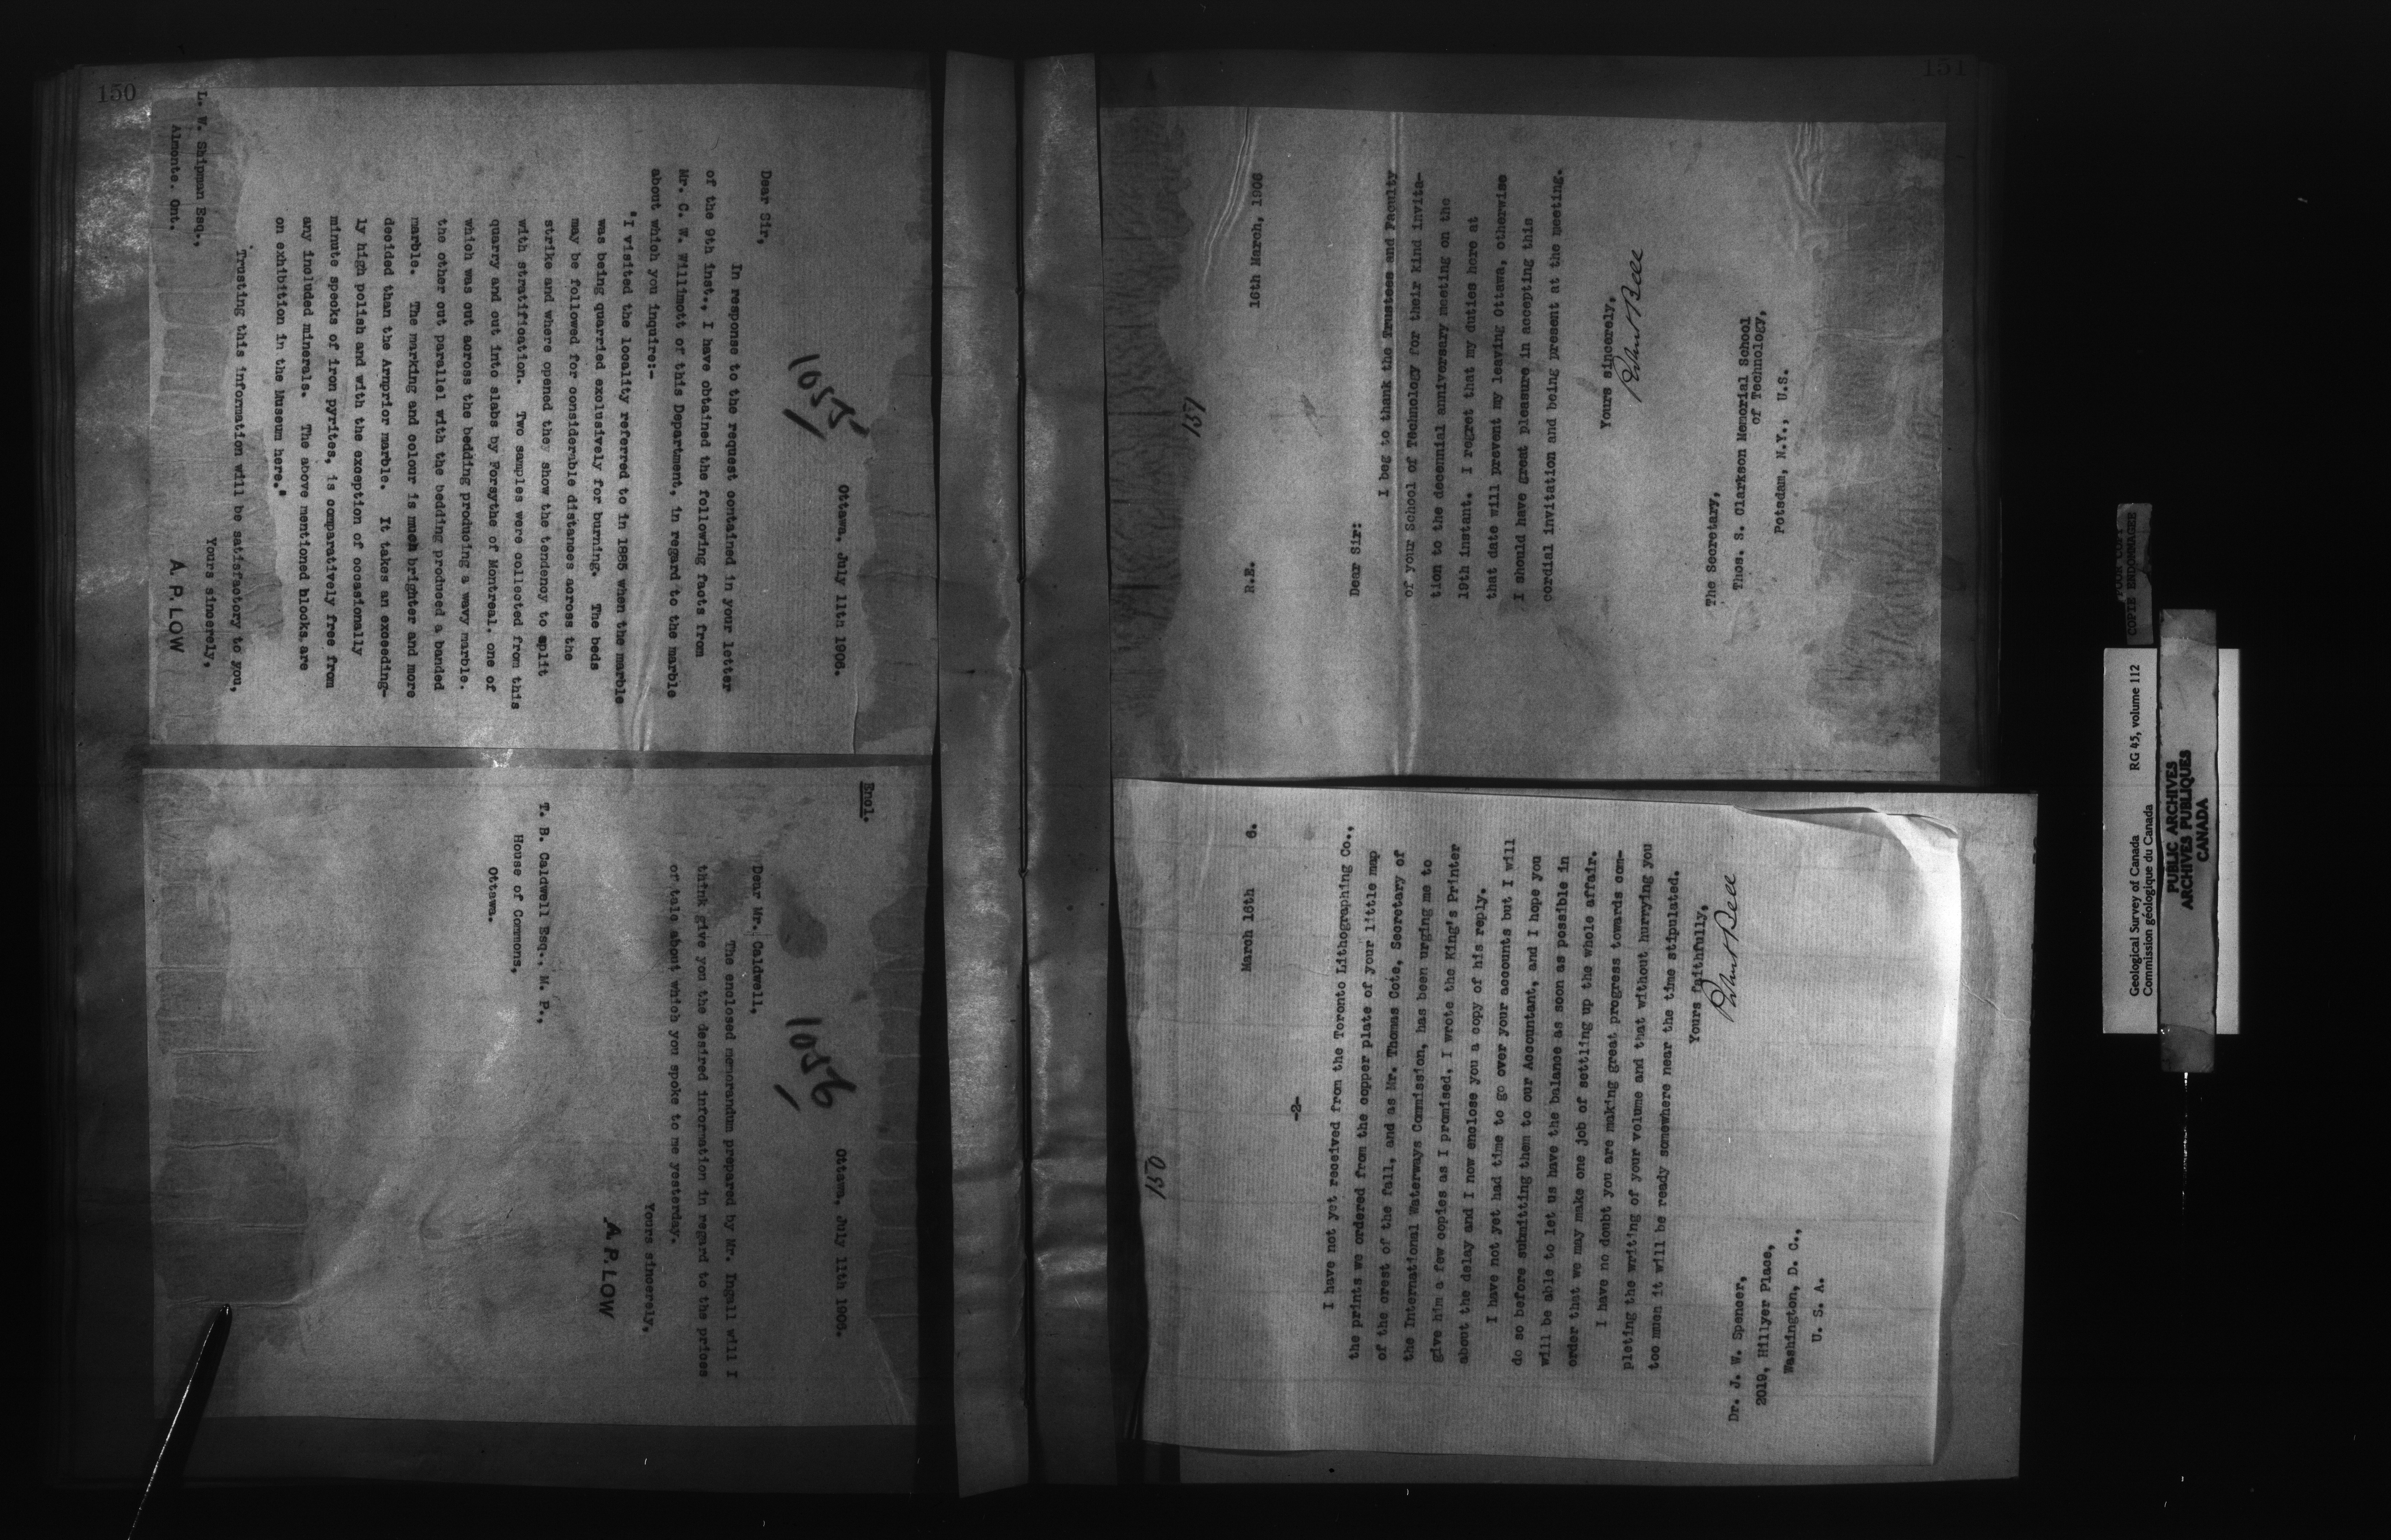 150
1055
Ottawa, July 11th 1906.
Dear Sir,
In response to the request contained in your letter
of the 9th inst., I have obtained the following facts from
Mr. C. W. Willimott of this Department, in regard to the marble
about which you inquire:-
"I visited the locality referred to in 1885 when the marble
was being quarried exclusively for burning. The beds
may be followed for considerable distances across the
strike and where opened they show the tendency to split
with stratification. Two samples were collected from this
quarry and cut into slabs by Forsythe of Montreal, one of
which was cut across the bedding producing a wavy marble.
the other cut parallel with the bedding produced a banded
marble. The marking and colour is much brighter and more
decided than the Arnprior marble. It takes an exceeding-
ly high polish and with the exception of occasionally
minute specks of iron pyrites, is comparatively free from
any included minerals. The above mentioned blocks are
on exhibition in the Museum here."
Trusting this information will be satisfactory to you,
Yours sincerely,
A. P. LOW
L. W. Shipman Esq.,
Almonte. Ont.
Encl.
1056
Ottawa, July 11th 1906.
Dear Mr. Caldwell,
The enclosed memorandum prepared by Mr. Ingall will I
think give you the desired information in regard to the prices
of talc about which you spoke to me yesterday.
Yours sincerely,
A. P. LOW
T. B. Caldwell Esq., M. P.,
House of Commons,
Ottawa.
151
150
March 16th 6.
-2-
I have not yet received from the Toronto Lithographing Co.,
the prints we ordered from the copper plate of your little map
of the crest of the fall, and as Mr. Thomas Cote, Secretary of
the International Waterways Commission, has been urging me to
give him a few copies as I promised, I wrote the King's Printer
about the delay and I now enclose you a copy of his reply.
I have not yet had time to go over your accounts but I will
do so before submitting them to our Accountant, and I hope you
will be able to let us have the balance as soon as possible in
order that we may make one job of settling up the whole affair.
I have no doubt you are making great progress towards com-
pleting the writing of your volume and that without hurrying you
too much it will be ready somewhere near the time stipulated.
Yours faithfully,
Robert Bell
Dr. J. W. Spencer,
2019, Hillyer Place,
Washington, D. C.,
U. S. A.
151
R.E. 16th March, 1906
Dear Sir:
I beg to thank the Trustees and Faculty
of your School of Technology for their kind invita-
tion to the decennial anniversary meeting on the
19th instant. I regret that my duties here at
that date will prevent my leaving Ottawa, otherwise
I should have great pleasure in accepting this
cordial invitation and being present at the meeting.
Yours sincerely,
Robert Bell
The Secretary,
Thos. S. Clarkson Memorial School
of Technology,
Potsdam, N.Y., U.S.
POOR COPY
COPIE ENDOMMAGEE
Geological Survey of Canada RG 45, volume 112
Commission géologique du Canada
PUBLIC ARCHIVES
ARCHIVES PUBLIQUES
CANADA